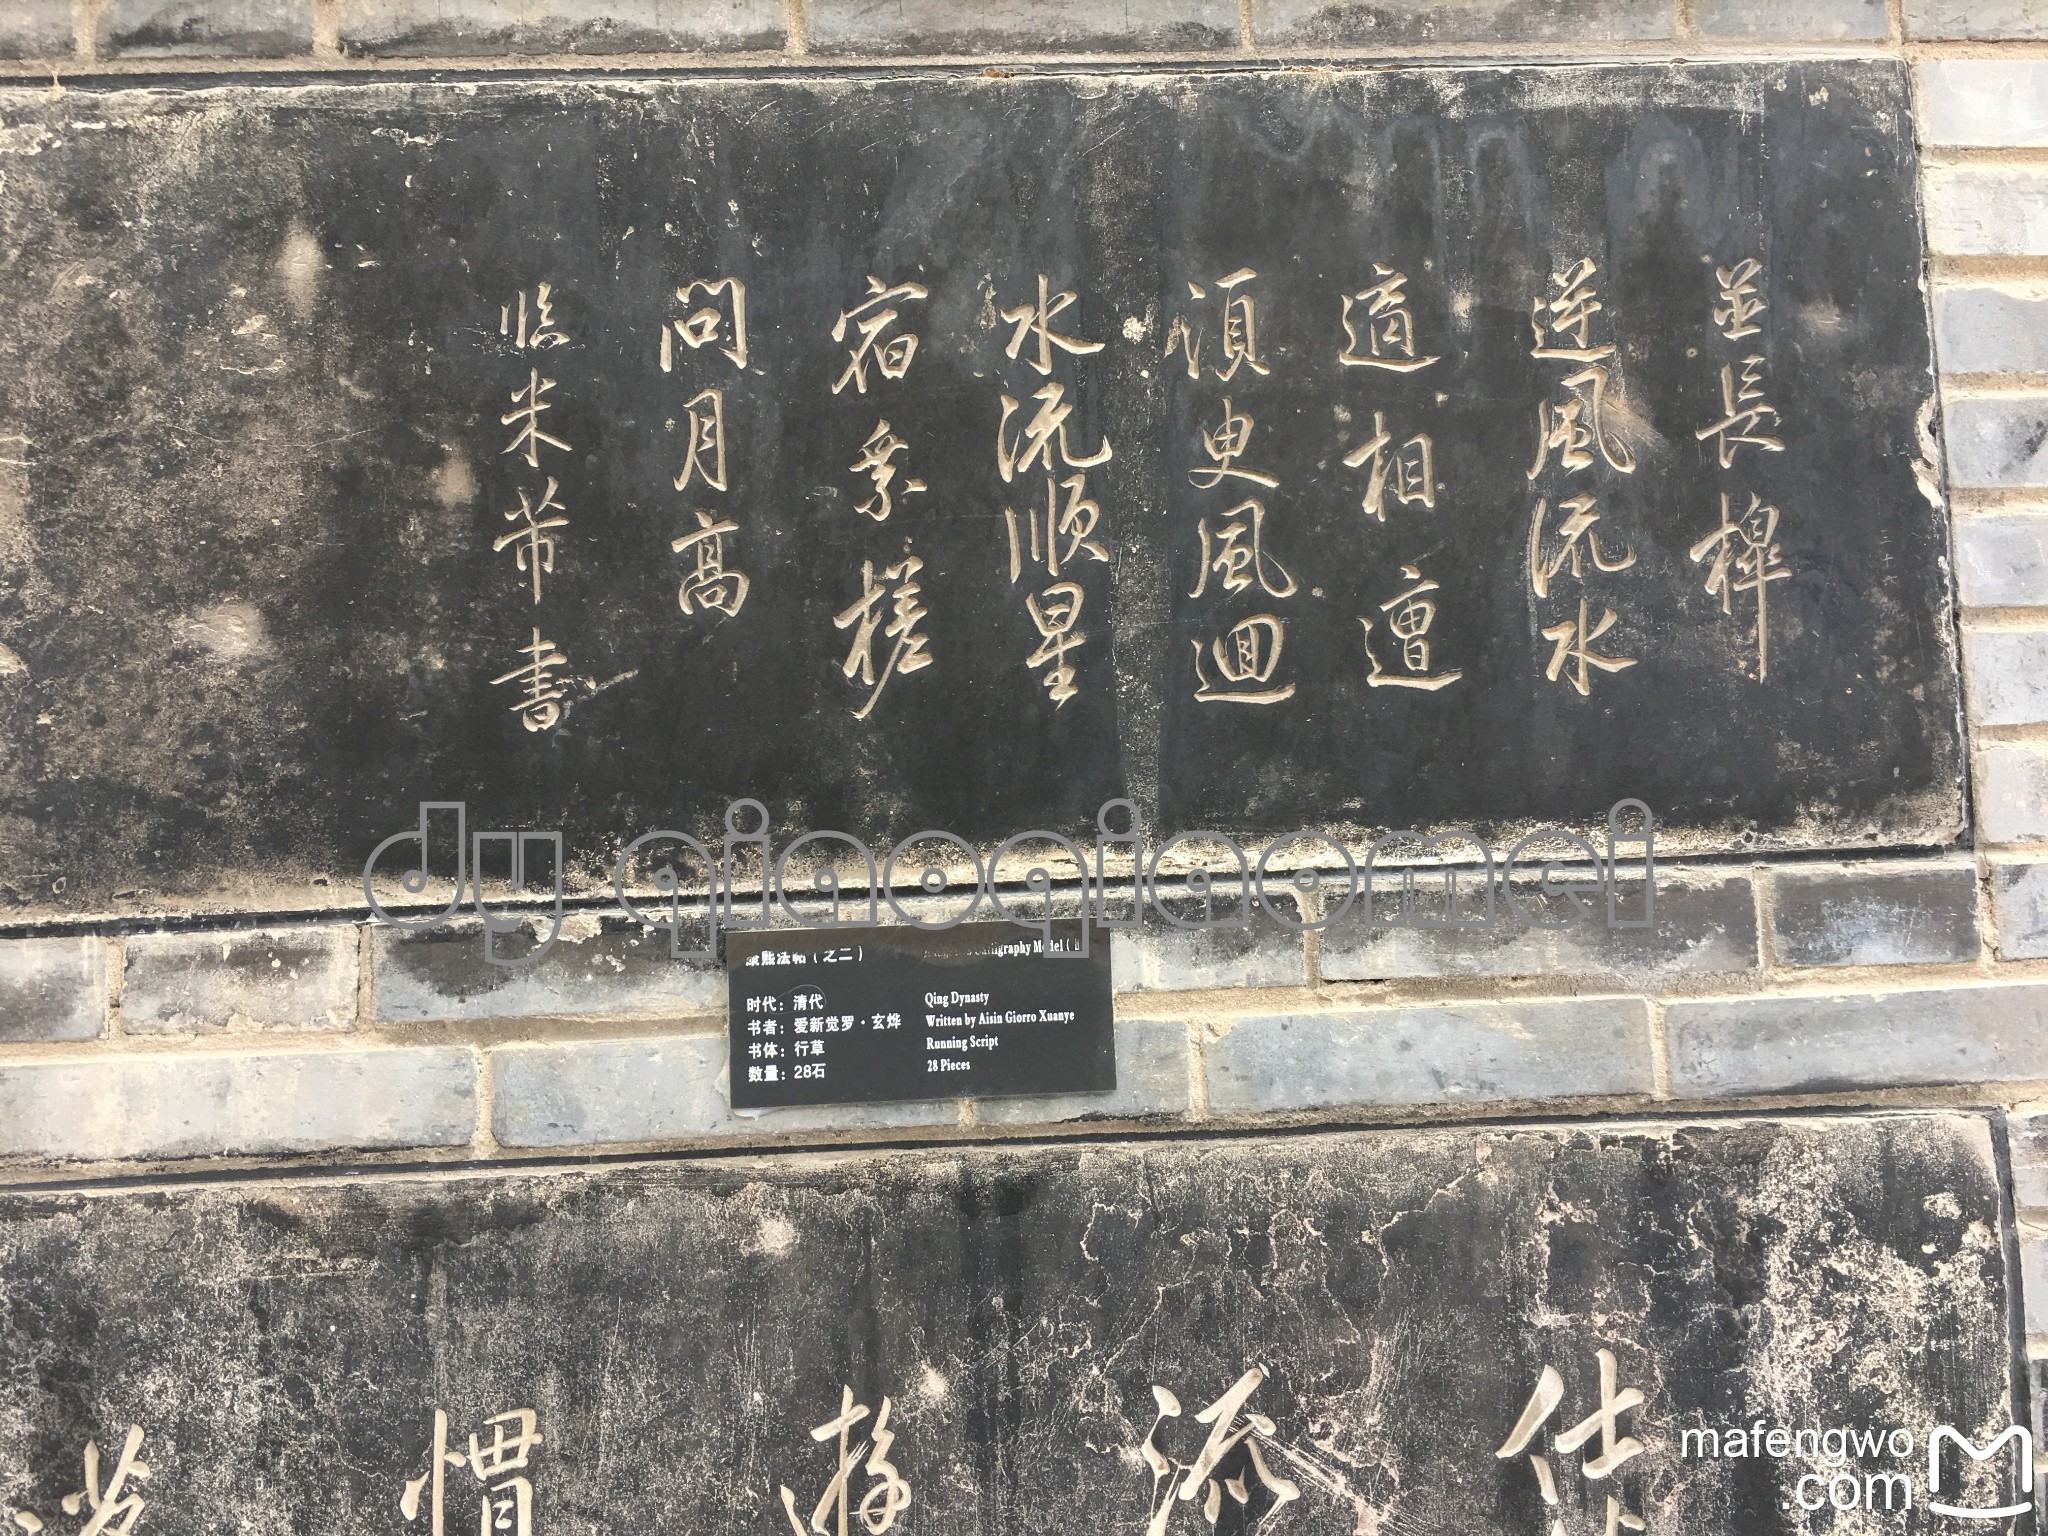 並長櫸
逆風流水
適相遭
須臾風迴
水流順星
宿乘槎
問月高
臨米芾書
dy qiaoqiaomei
康熙法帖（之二）
Calligraphy Model (
时代：清代
Qing Dynasty
书者：爱新觉罗·玄烨
Written by Aisin Giorro Xuanye
书体：行草
Running Script
数量：28石
28 Pieces
仕
添
游
慣
mafengwo
.com